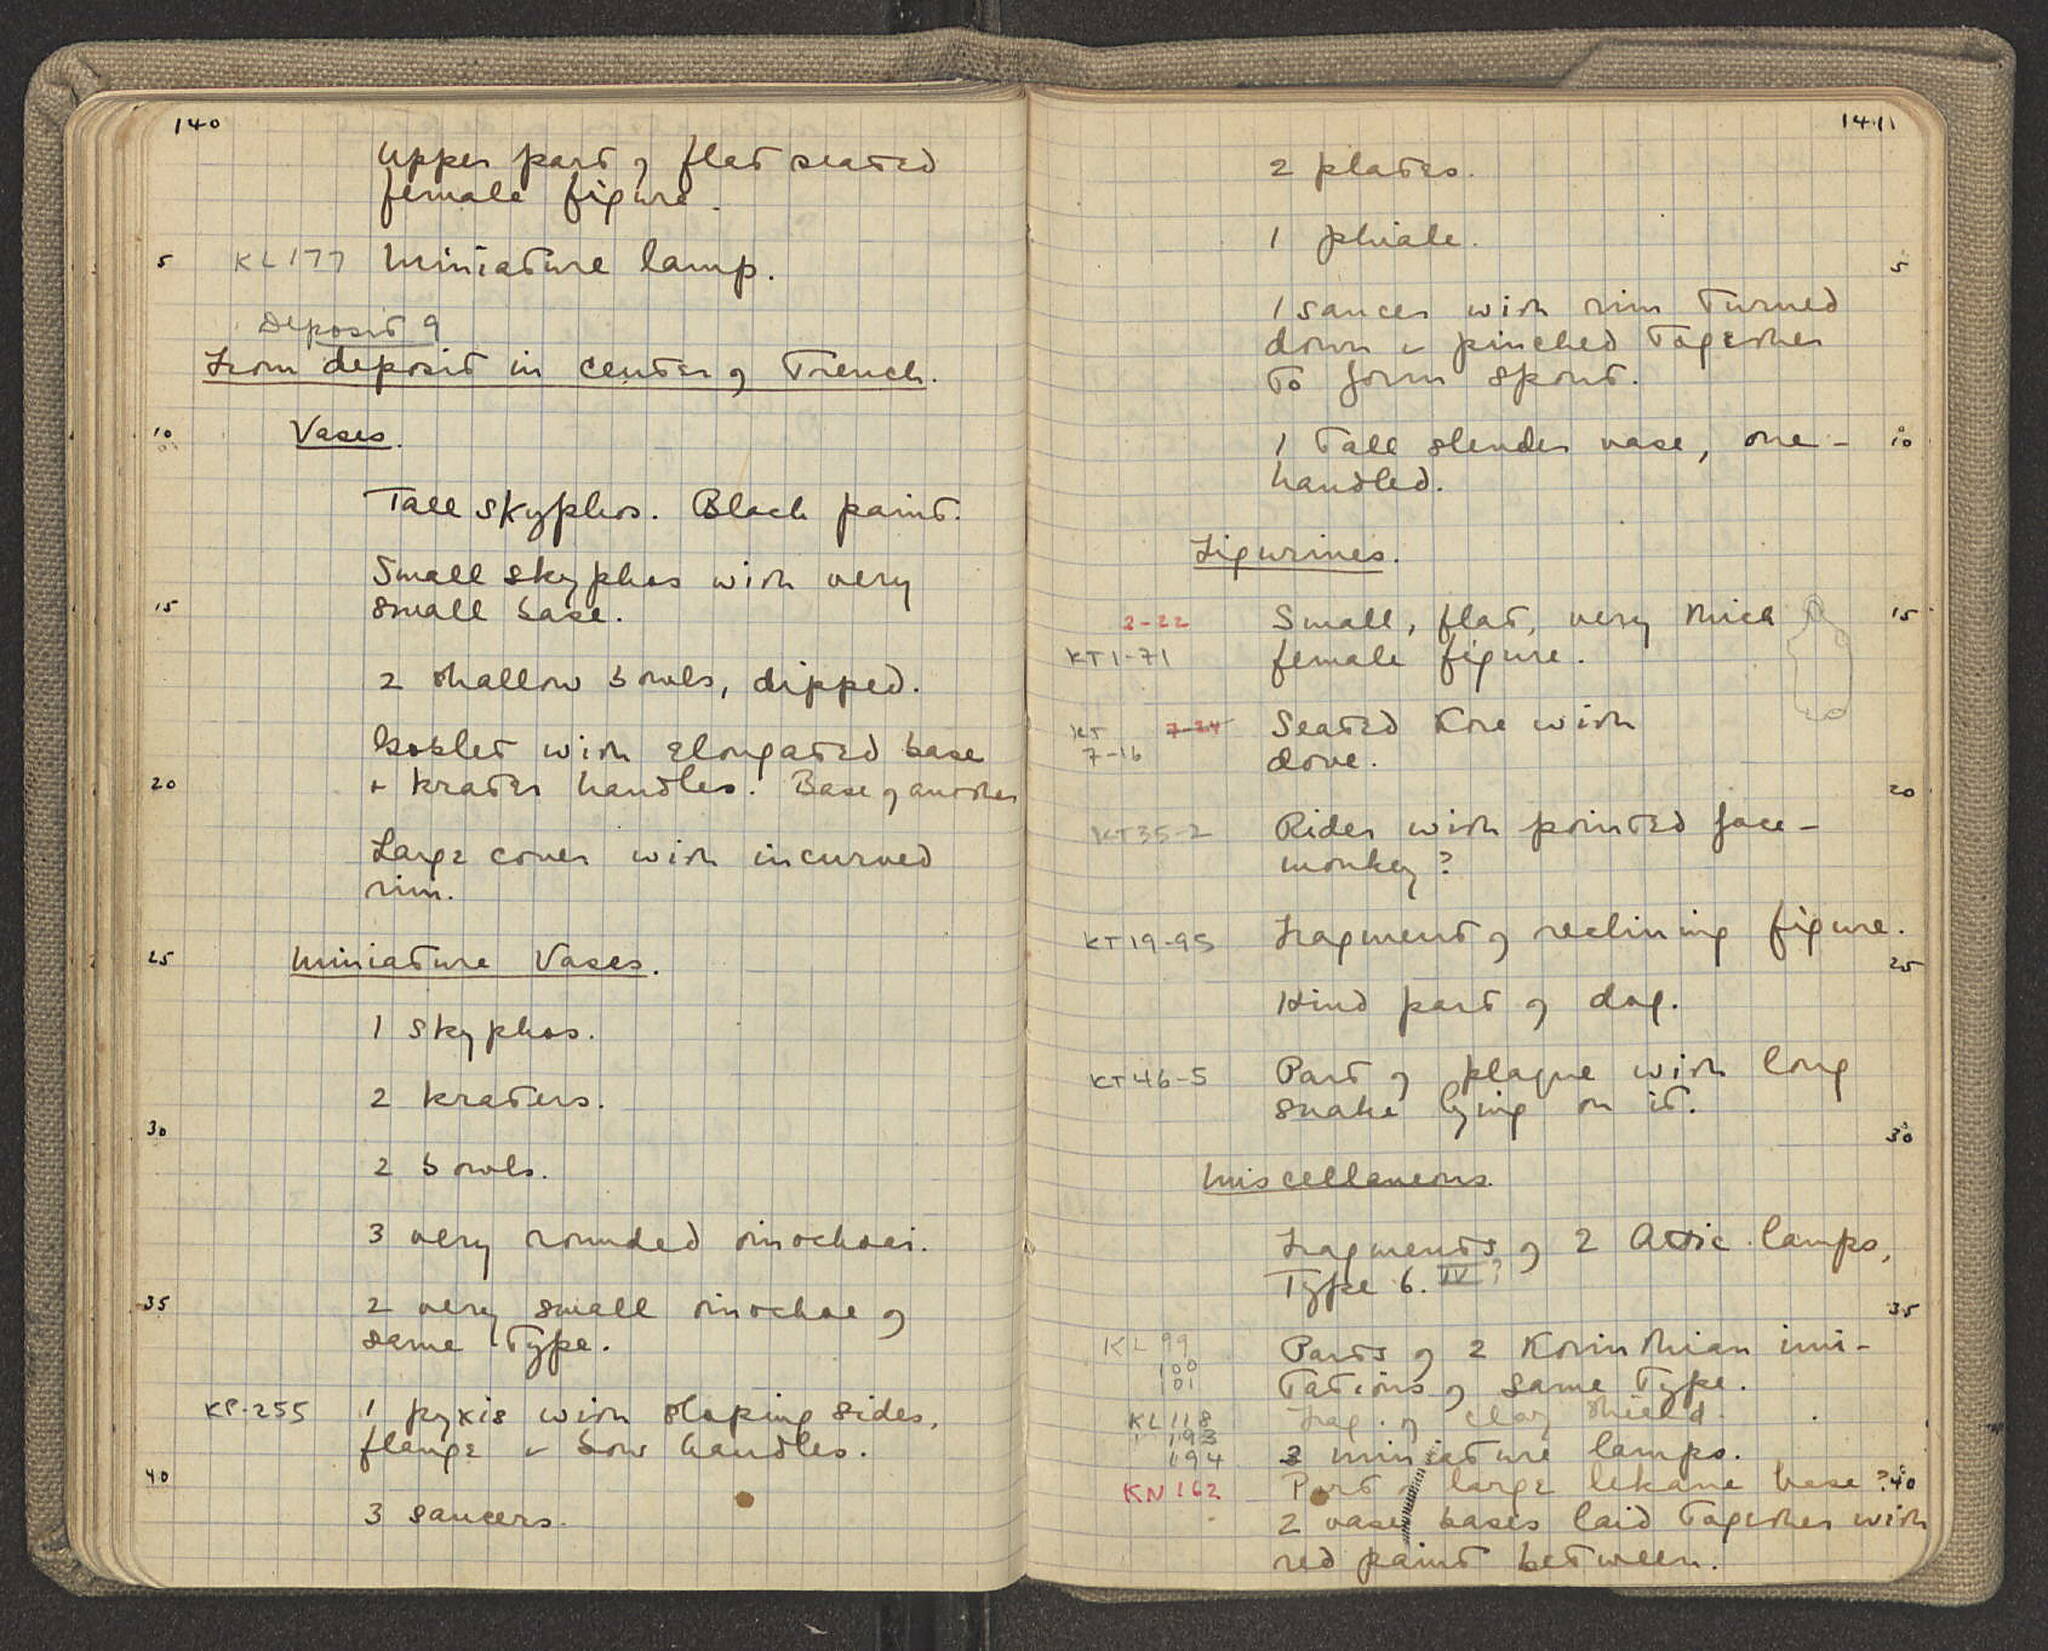 140
Upper part of flat seated
female figure.
5 KL177 Miniature lamp.
Deposit 9
From deposit in center of Trench.
10 Vases.
Tall skyphos. Black paint.
Small skyphos with very
15 small base.
2 shallow bowls, dipped.
Goblet with elongated base
20 + krater handles. Base of another
Large cover with incurved
rim.
25 Miniature Vases.
1 skyphos.
2 kraters.
30
2 bowls.
3 very rounded oinochoai.
35 2 very small oinochoe of
same type.
KP-255 1 pyxis with sloping sides,
flange + bow handles.
40
3 saucers.
141
2 plates.
1 phiale.
5
1 saucer with rim turned
down + pinched together
to form spout.
1 tall slender vase, one- 10
handled.
Figurines.
2-22 Small, flat, very thick 15
KT1-71 female figure.
KT 7-24 Seated Kore with
7-16 dove.
20
KT35-2 Rider with pointed face-
monkey?
KT19-95 Fragment of reclining figure.
25
Hind part of dog.
KT46-5 Part of plaque with long
snake lying on it.
30
Miscellaneous.
Fragments of 2 Attic lamps,
Type 6. IV?
35
KL 99 Parts of 2 Korinthian imi-
100
101 tations of same type.
KL118 Frag. of clay shield.
" 193
194 3 miniature lamps.
KN162 Part of large lekane base? 40
2 vase bases laid together with
red paint between.